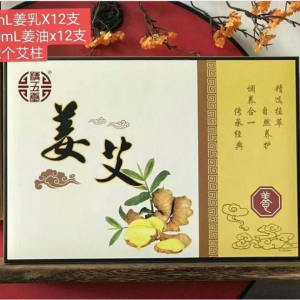 mL姜乳X12支
mL姜油x12支
个艾柱
姜艾
精选植萃
自然养护
调养合一
传承经典